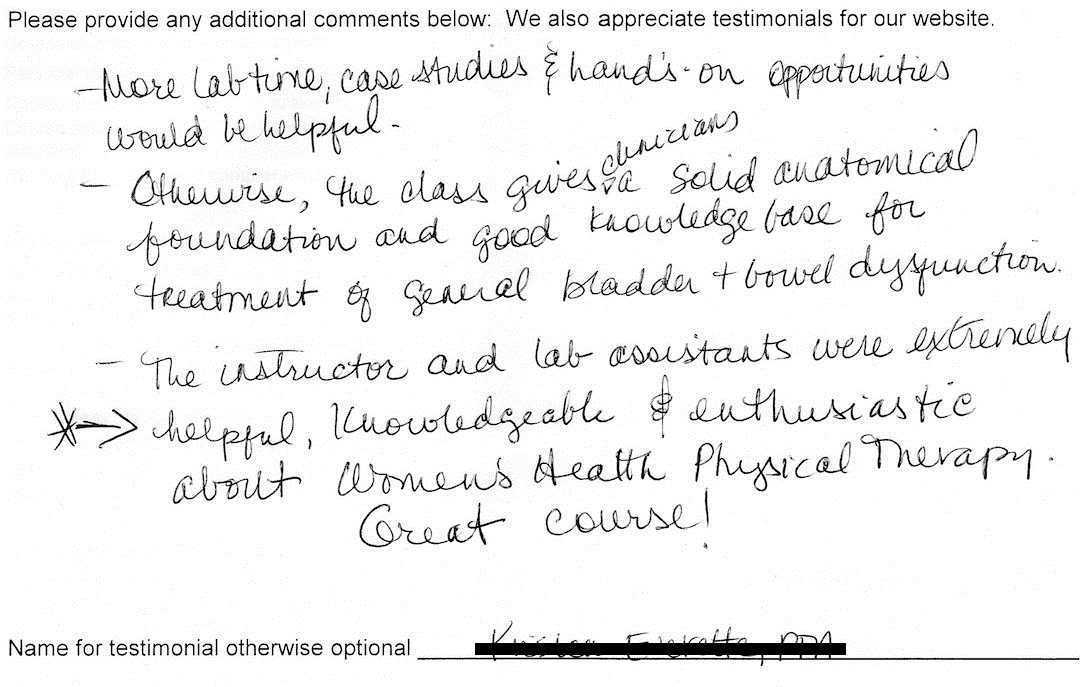 Please provide any additional comments below: We also appreciate testimonials for our website.
- More lab time, case studies & hand's-on opportunities
would be helpful.
- Otherwise, the class gives clinicians a solid anatomical
foundation and good knowledge base for
treatment of general bladder + bowel dysfunction.
- The instructor and lab assistants were extremely
* → helpful, knowledgeable & enthusiastic
about Women's Health Physical Therapy.
Great course!
Name for testimonial otherwise optional